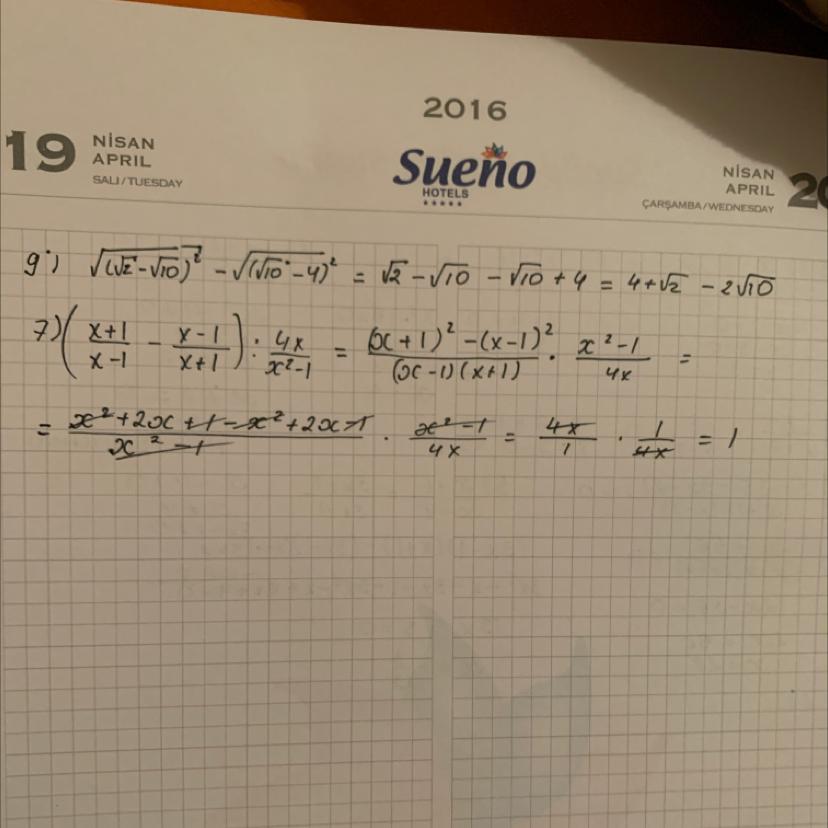 2016
19 NİSAN APRIL SALI/TUESDAY
Sueno HOTELS
NİSAN APRIL ÇARŞAMBA/WEDNESDAY 20
9) √((√2-√10)²) - √((√10-4)²) = √2-√10 -√10+4 = 4+√2 - 2√10
7) ((x+1)/(x-1) - (x-1)/(x+1)) : 4x/(x²-1) = ((x+1)²-(x-1)²)/((x-1)(x+1)) · (x²-1)/4x =
= (x²+2x+1-x²+2x-1)/(x²-1) · (x²-1)/4x = 4x/1 · 1/4x = 1